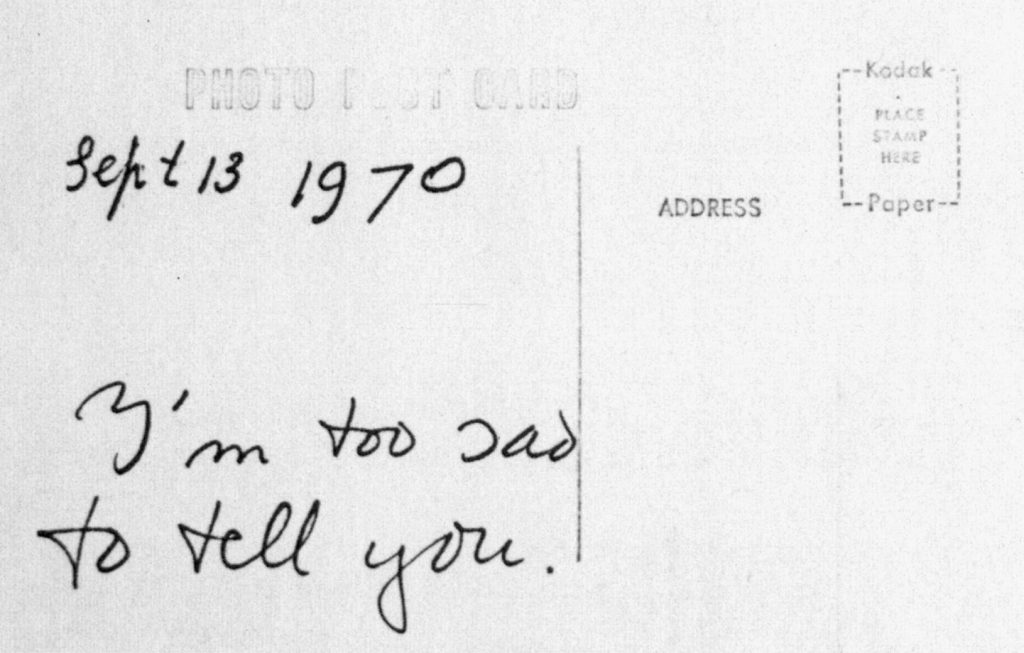 PHOTO POST CARD
Kodak
PLACE
STAMP
HERE
Paper
Sept 13 1970
ADDRESS
I'm too sad
to tell you.